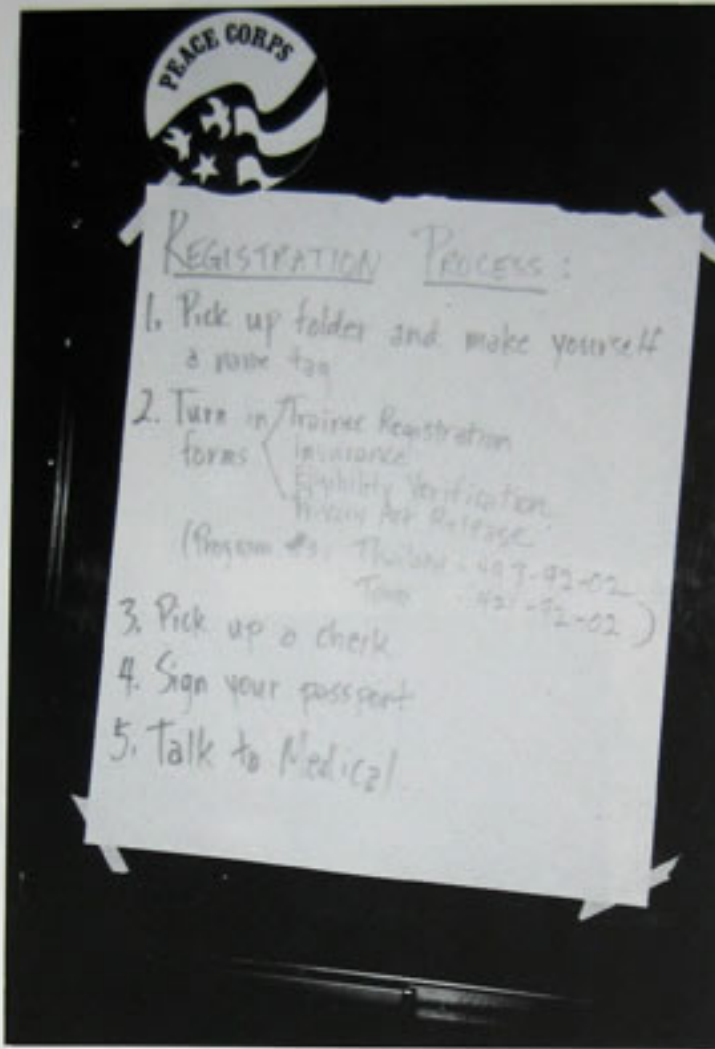 PEACE CORPS
REGISTRATION PROCESS:
1. Pick up folder and make yourself
a name tag
2. Turn in Trainee Registration
forms Insurance
Eligibility Verification
Privacy Act Release
(Program #s: Thailand - -92-02
-92-02)
3. Pick up a check
4. Sign your passport
5. Talk to Medical